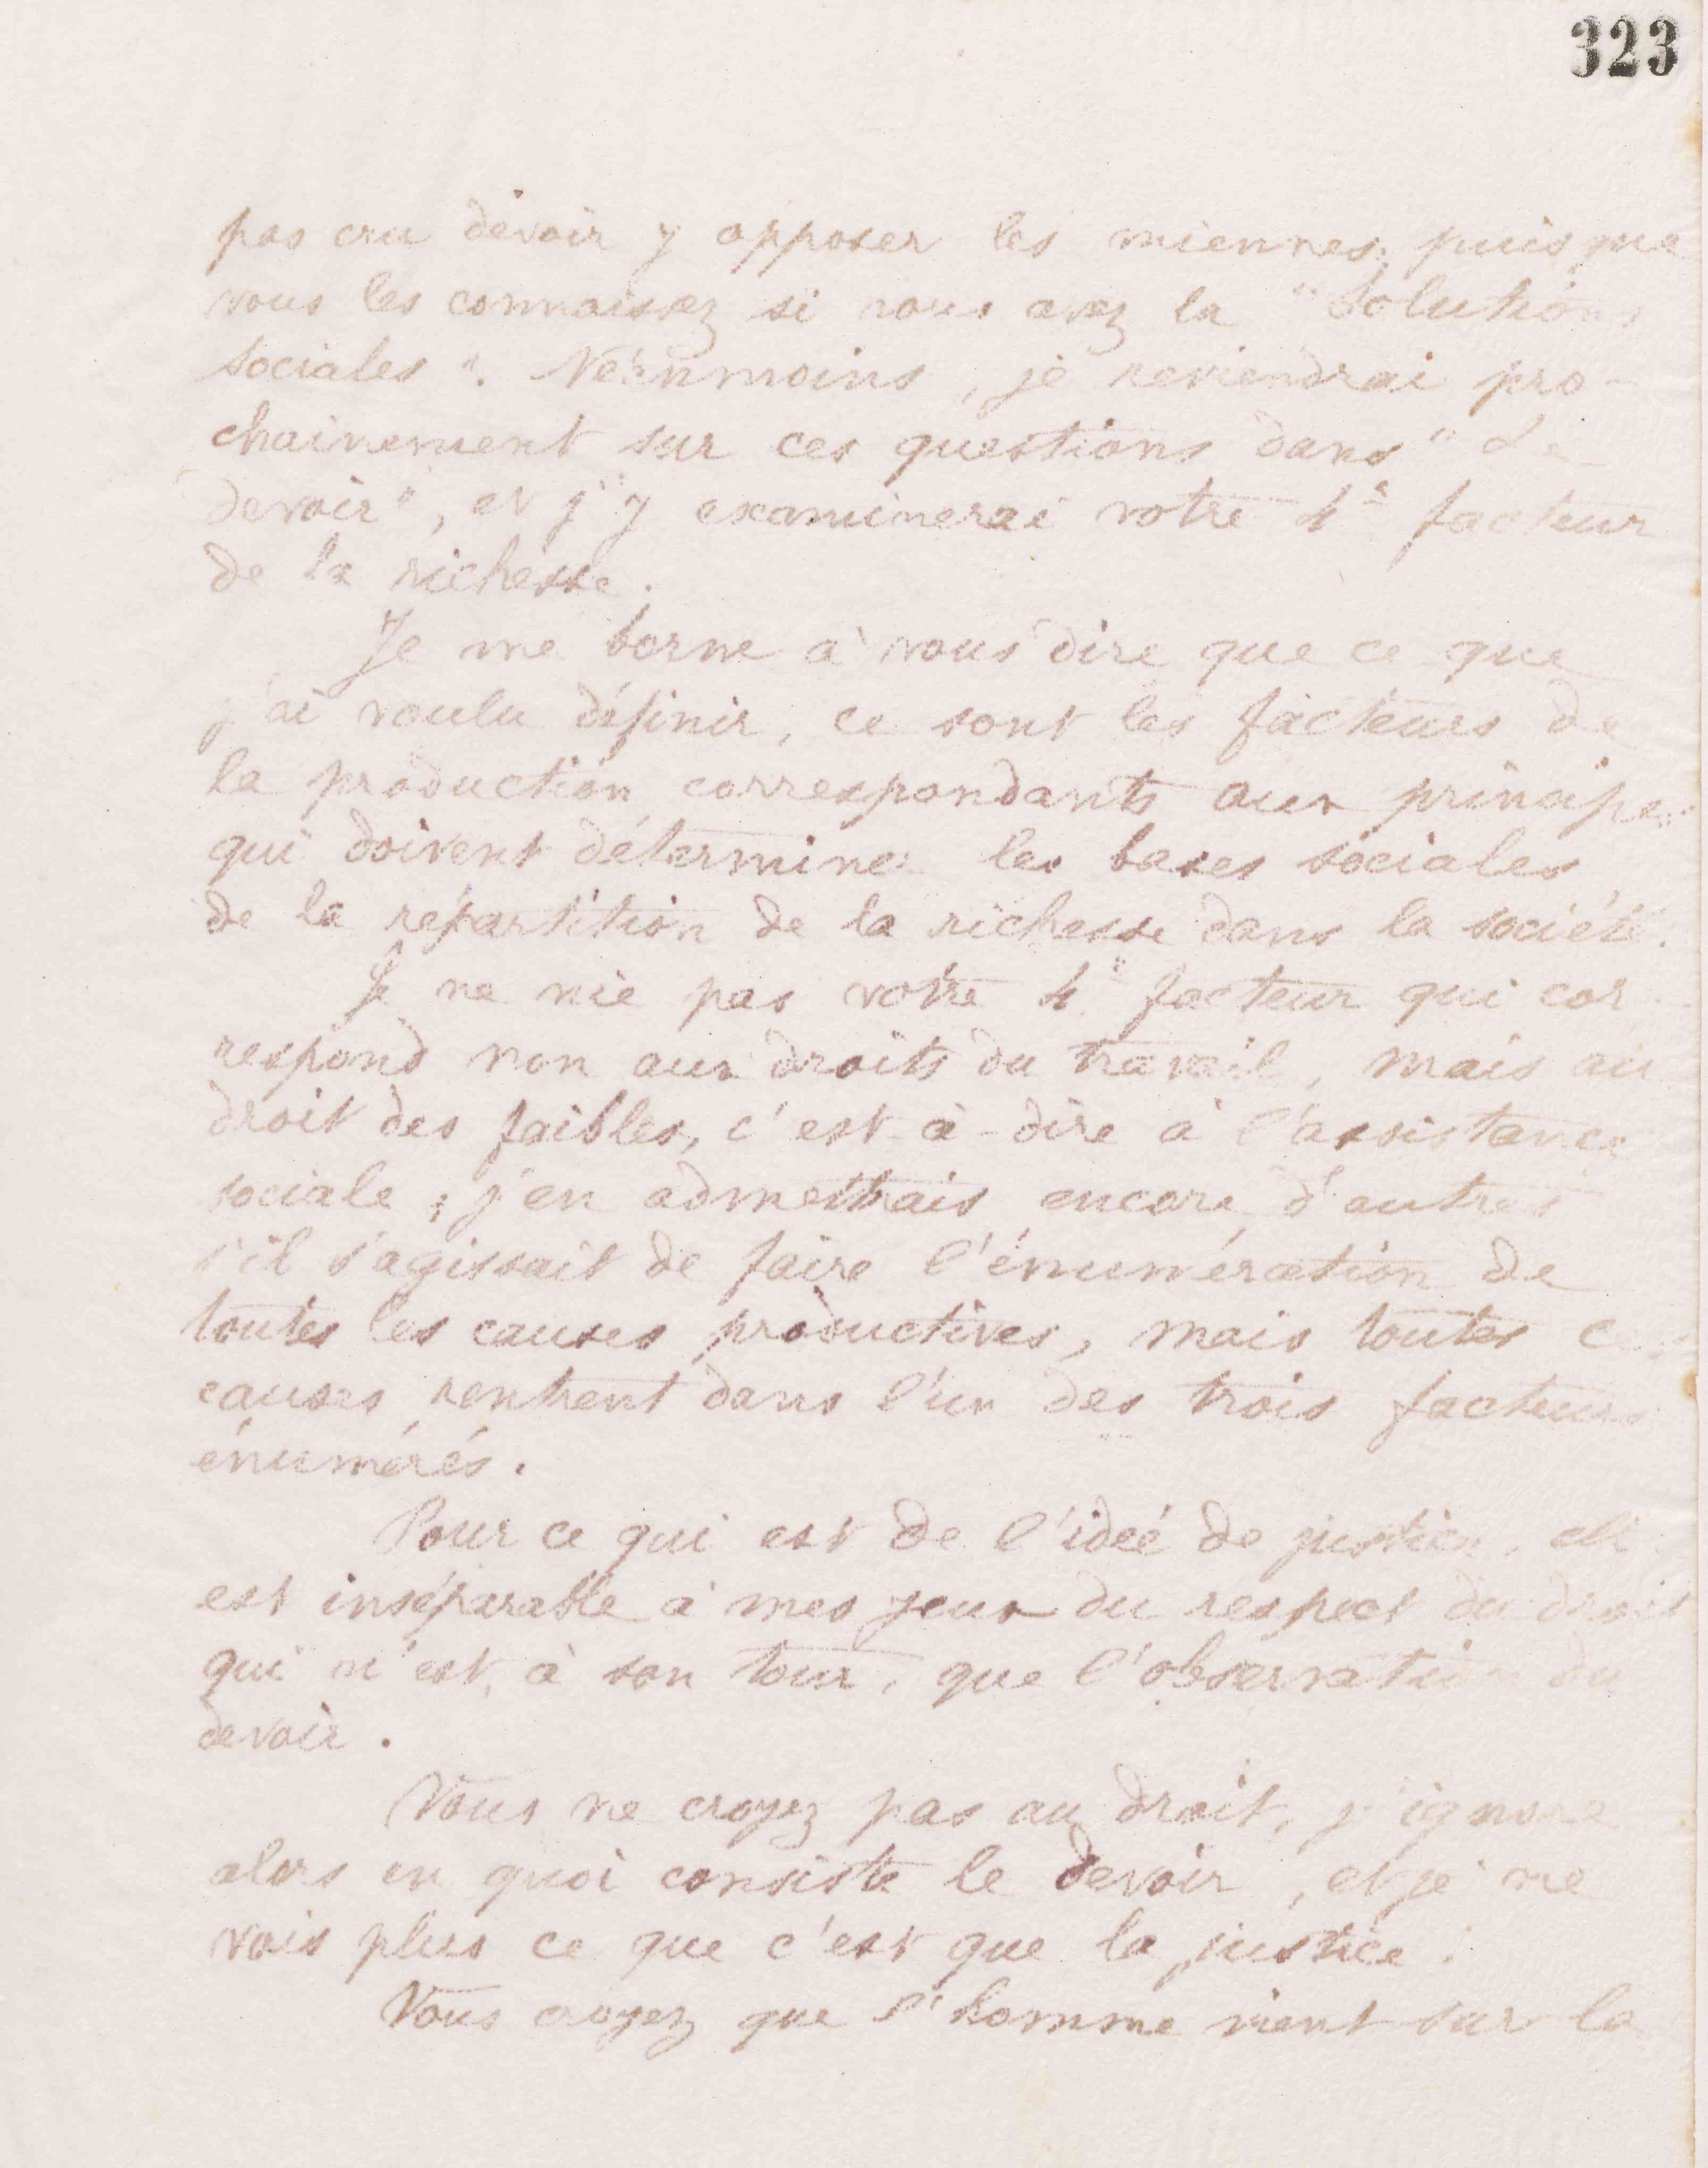 323
pas cru devoir y opposer les miennes, puisque
vous les connaissez si vous avez la "Solutions
sociales". Néanmoins, je reviendrai pro-
chainement sur ces questions dans "Le
devoir", et j'y examinerai votre 4e facteur
de la richesse.
Je me borne à vous dire que ce que
j'ai voulu définir, ce sont les facteurs de
la production correspondants aux principes
qui doivent déterminer les bases sociales
de la répartition de la richesse dans la société.
Je ne nie pas votre 4e facteur qui cor-
respond non aux droits du travail, mais au
droit des faibles, c'est-à-dire à l'assistance
sociale ; j'en admettrais encore d'autres
s'il s'agissait de faire l'énumération de
toutes les causes productives, mais toutes
causes rentrent dans l'un des trois facteurs
énumérés.
Pour ce qui est de l'idée de justice, elle
est inséparable à mes yeux du respect du droit
qui n'est, à son tour, que l'observation du
devoir.
Vous ne croyez pas au droit, j'ignore
alors en quoi consiste le devoir, et je ne
vois plus ce que c'est que la justice.
Vous croyez que l'homme vient sur la